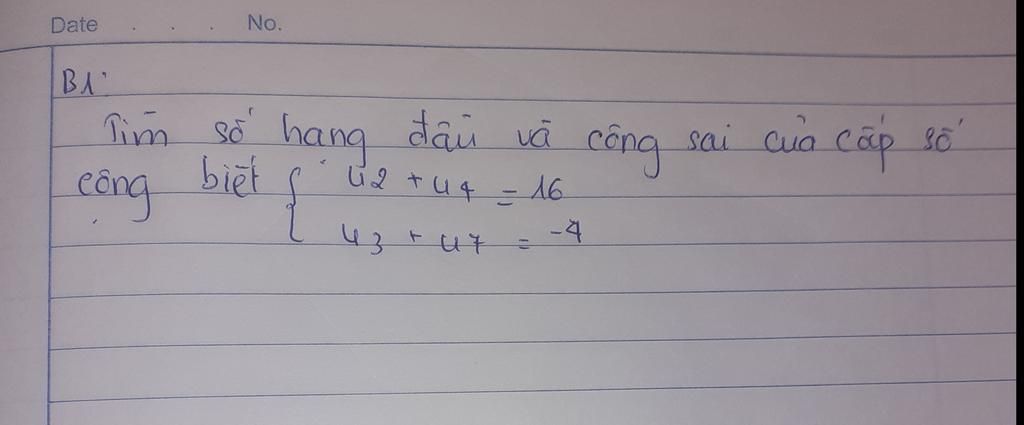 Date . . . No.
B1:
Tìm số hạng đầu và công sai của cấp số
cộng biết { u2 + u4 = 16
u3 + u7 = -4